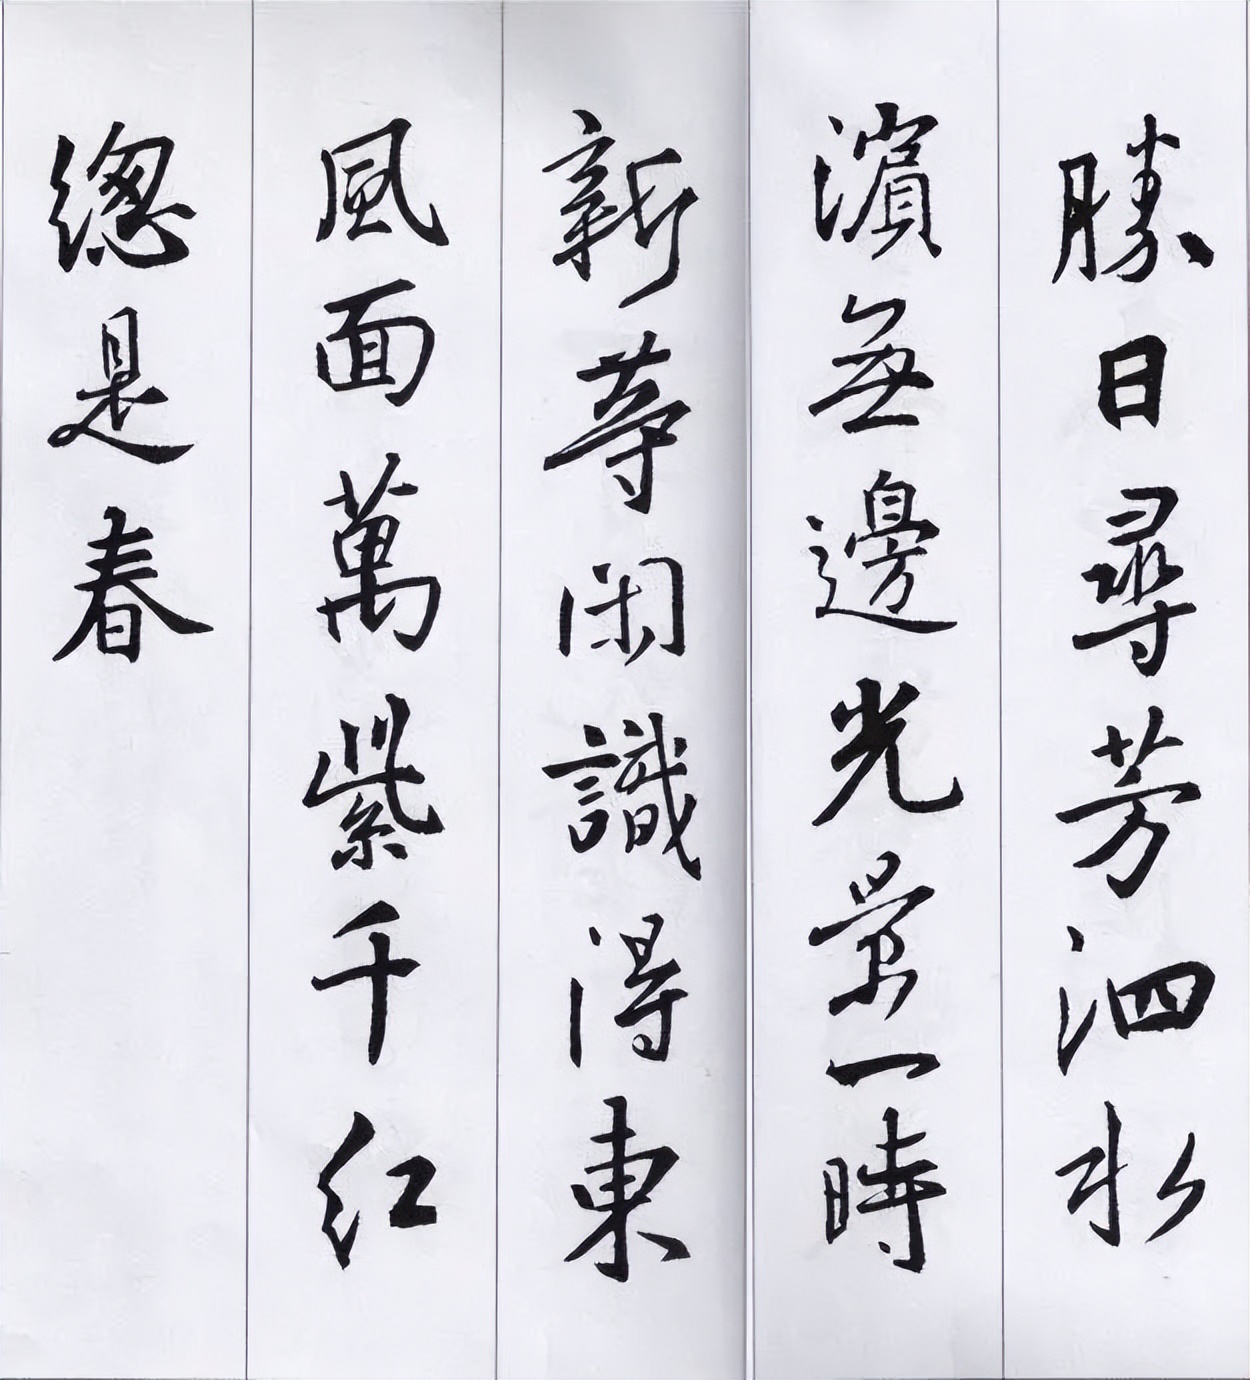 勝日尋芳泗水
濵無邊光景一時
新等閑識得東
風面萬紫千紅
總是春